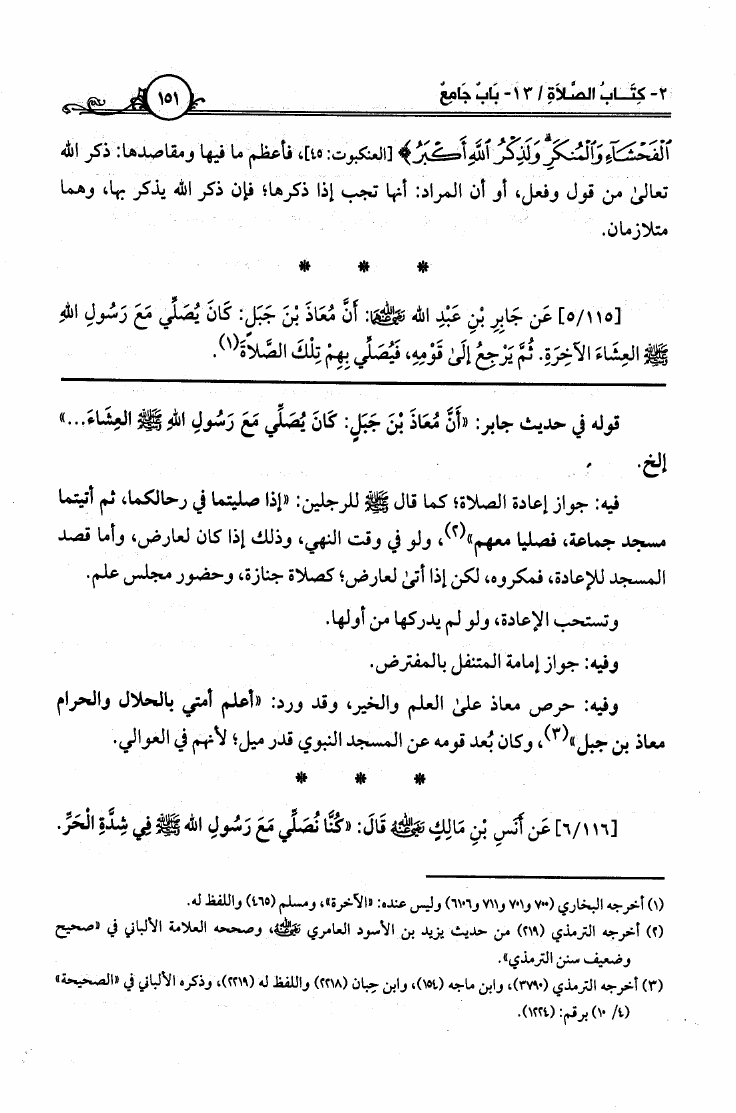 ٢- كِتَابُ الصَّلَاةِ / ١٣- بَابٌ جَامِعٌ
١٥١
ٱلْفَحْشَآءِ وَٱلْمُنكَرِۗ وَلَذِكْرُ ٱللَّهِ أَكْبَرُ﴾ [العنكبوت: ٤٥]، فأعظم ما فيها ومقاصدها: ذكر الله
تعالىٰ من قول وفعل، أو أن المراد: أنها تجب إذا ذكرها؛ فإن ذكر الله يذكر بها، وهما
متلازمان.
* * *
[٥/١١٥] عَن جَابِرِ بْنِ عَبْدِ الله ﵄: أَنَّ مُعَاذَ بْنَ جَبَلٍ: كَانَ يُصَلِّي مَعَ رَسُولِ اللهِ
ﷺ العِشَاءَ الآخِرَةِ. ثُمَّ يَرْجِعُ إِلَىٰ قَوْمِهِ، فَيُصَلِّي بِهِمْ تِلْكَ الصَّلَاةَ(١).
قوله في حديث جابر: «أَنَّ مُعَاذَ بْنَ جَبَلٍ: كَانَ يُصَلِّي مَعَ رَسُولِ اللهِ ﷺ العِشَاءَ...»
إلخ.
فيه: جواز إعادة الصلاة؛ كما قال ﷺ للرجلين: «إذا صليتما في رحالكما، ثم أتيتما
مسجد جماعة، فصليا معهم»(٢)، ولو في وقت النهي، وذلك إذا كان لعارض، وأما قصد
المسجد للإعادة، فمكروه، لكن إذا أتىٰ لعارض؛ كصلاة جنازة، وحضور مجلس علم.
وتستحب الإعادة، ولو لم يدركها من أولها.
وفيه: جواز إمامة المتنفل بالمفترض.
وفيه: حرص معاذ علىٰ العلم والخير، وقد ورد: «أعلم أمتي بالحلال والحرام
معاذ بن جبل»(٣)، وكان بُعد قومه عن المسجد النبوي قدر ميل؛ لأنهم في العوالي.
* * *
[٦/١١٦] عَن أَنَسِ بْنِ مَالِكٍ ﵁ قَالَ: «كُنَّا نُصَلِّي مَعَ رَسُولِ الله ﷺ فِي شِدَّةِ الْحَرِّ.
(١) أخرجه البخاري (٧٠٠ و٧٠١ و٧١١ و٦١٠٦) وليس عنده: «الآخرة»، ومسلم (٤٦٥) واللفظ له.
(٢) أخرجه الترمذي (٢١٩) من حديث يزيد بن الأسود العامري ﵁، وصححه العلامة الألباني في «صحيح
وضعيف سنن الترمذي».
(٣) أخرجه الترمذي (٣٧٩٠)، وابن ماجه (١٥٤)، وابن حِبان (٢٢١٨) واللفظ له (٢٢١٩)، وذكره الألباني في «الصحيحة»
(٤/ ١٠) برقم: (١٢٢٤).